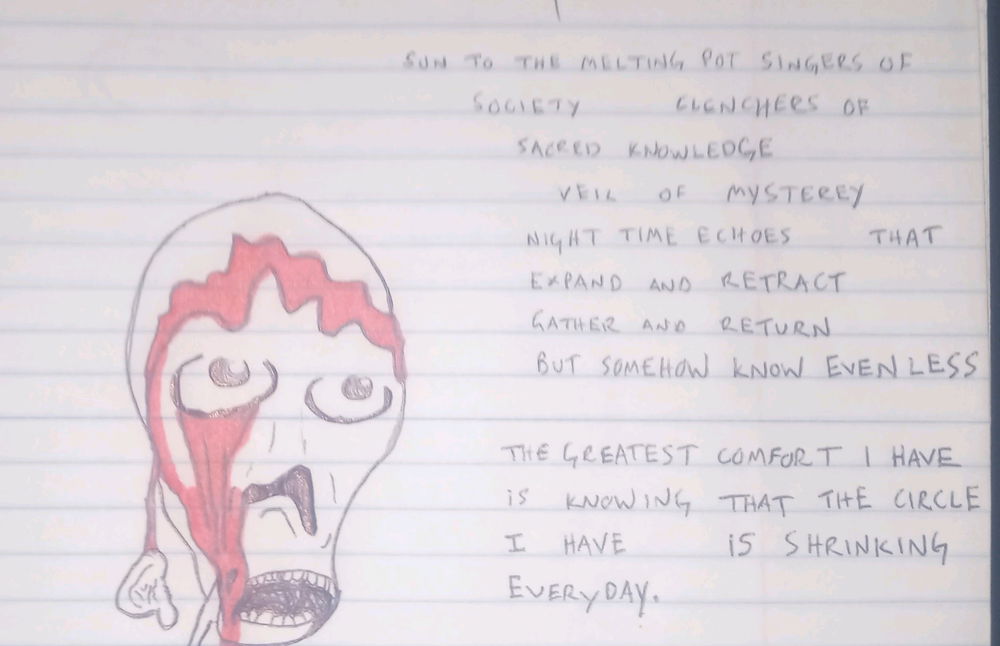 SUN TO THE MELTING POT SINGERS OF
SOCIETY CLENCHERS OF
SACRED KNOWLEDGE
VEIL OF MYSTEREY
NIGHT TIME ECHOES THAT
EXPAND AND RETRACT
GATHER AND RETURN
BUT SOMEHOW KNOW EVEN LESS
THE GREATEST COMFORT I HAVE
IS KNOWING THAT THE CIRCLE
I HAVE IS SHRINKING
EVERYDAY.